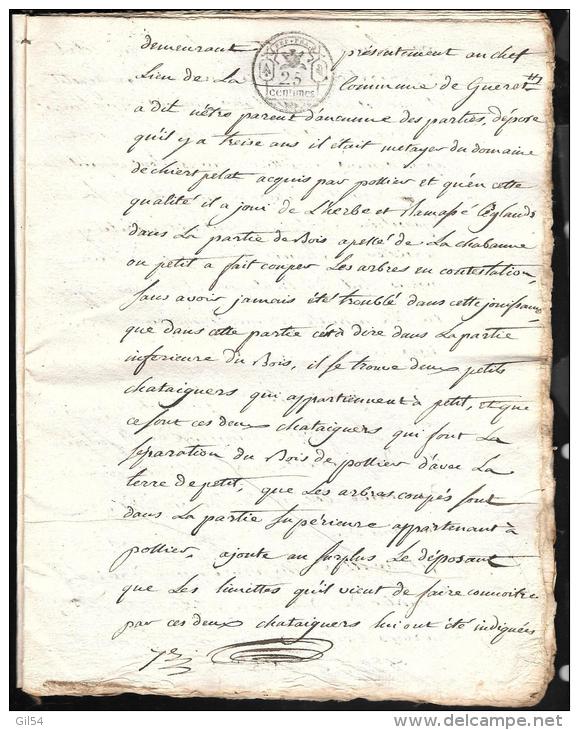 demeurant présentement au chef
REP. FRA.
25
centimes
Lieu de La Commune de Gueret
a dit n'être parent d'aucune des parties, dépose
qu'il y a treise ans il était metayer du domaine
de chier pelat acquis par pottier et qu'en cette
qualité il a joui de L'herbe et Ramassé Les glands
dans La partie de Bois apellé de La chabanne
ou petit a fait couper Les arbres en contestation,
sans avoir jamais été troublé dans cette jouissance
que dans cette partie c'est à dire dans La partie
inferieure du Bois, il se trouve deux petits
chataigners qui appartiennent à petit, et que
ce sont ces deux chataigners qui font La
separation du Bois de pottier d'avec La
terre de petit, que Les arbres coupés sont
dans La partie supérieure appartenant à
pottier, ajoute au surplus Le déposant
que Les limittes qu'il vient de faire connoitre
par ces deux chataigners lui ont été indiquées
Gil54
delcampe.net